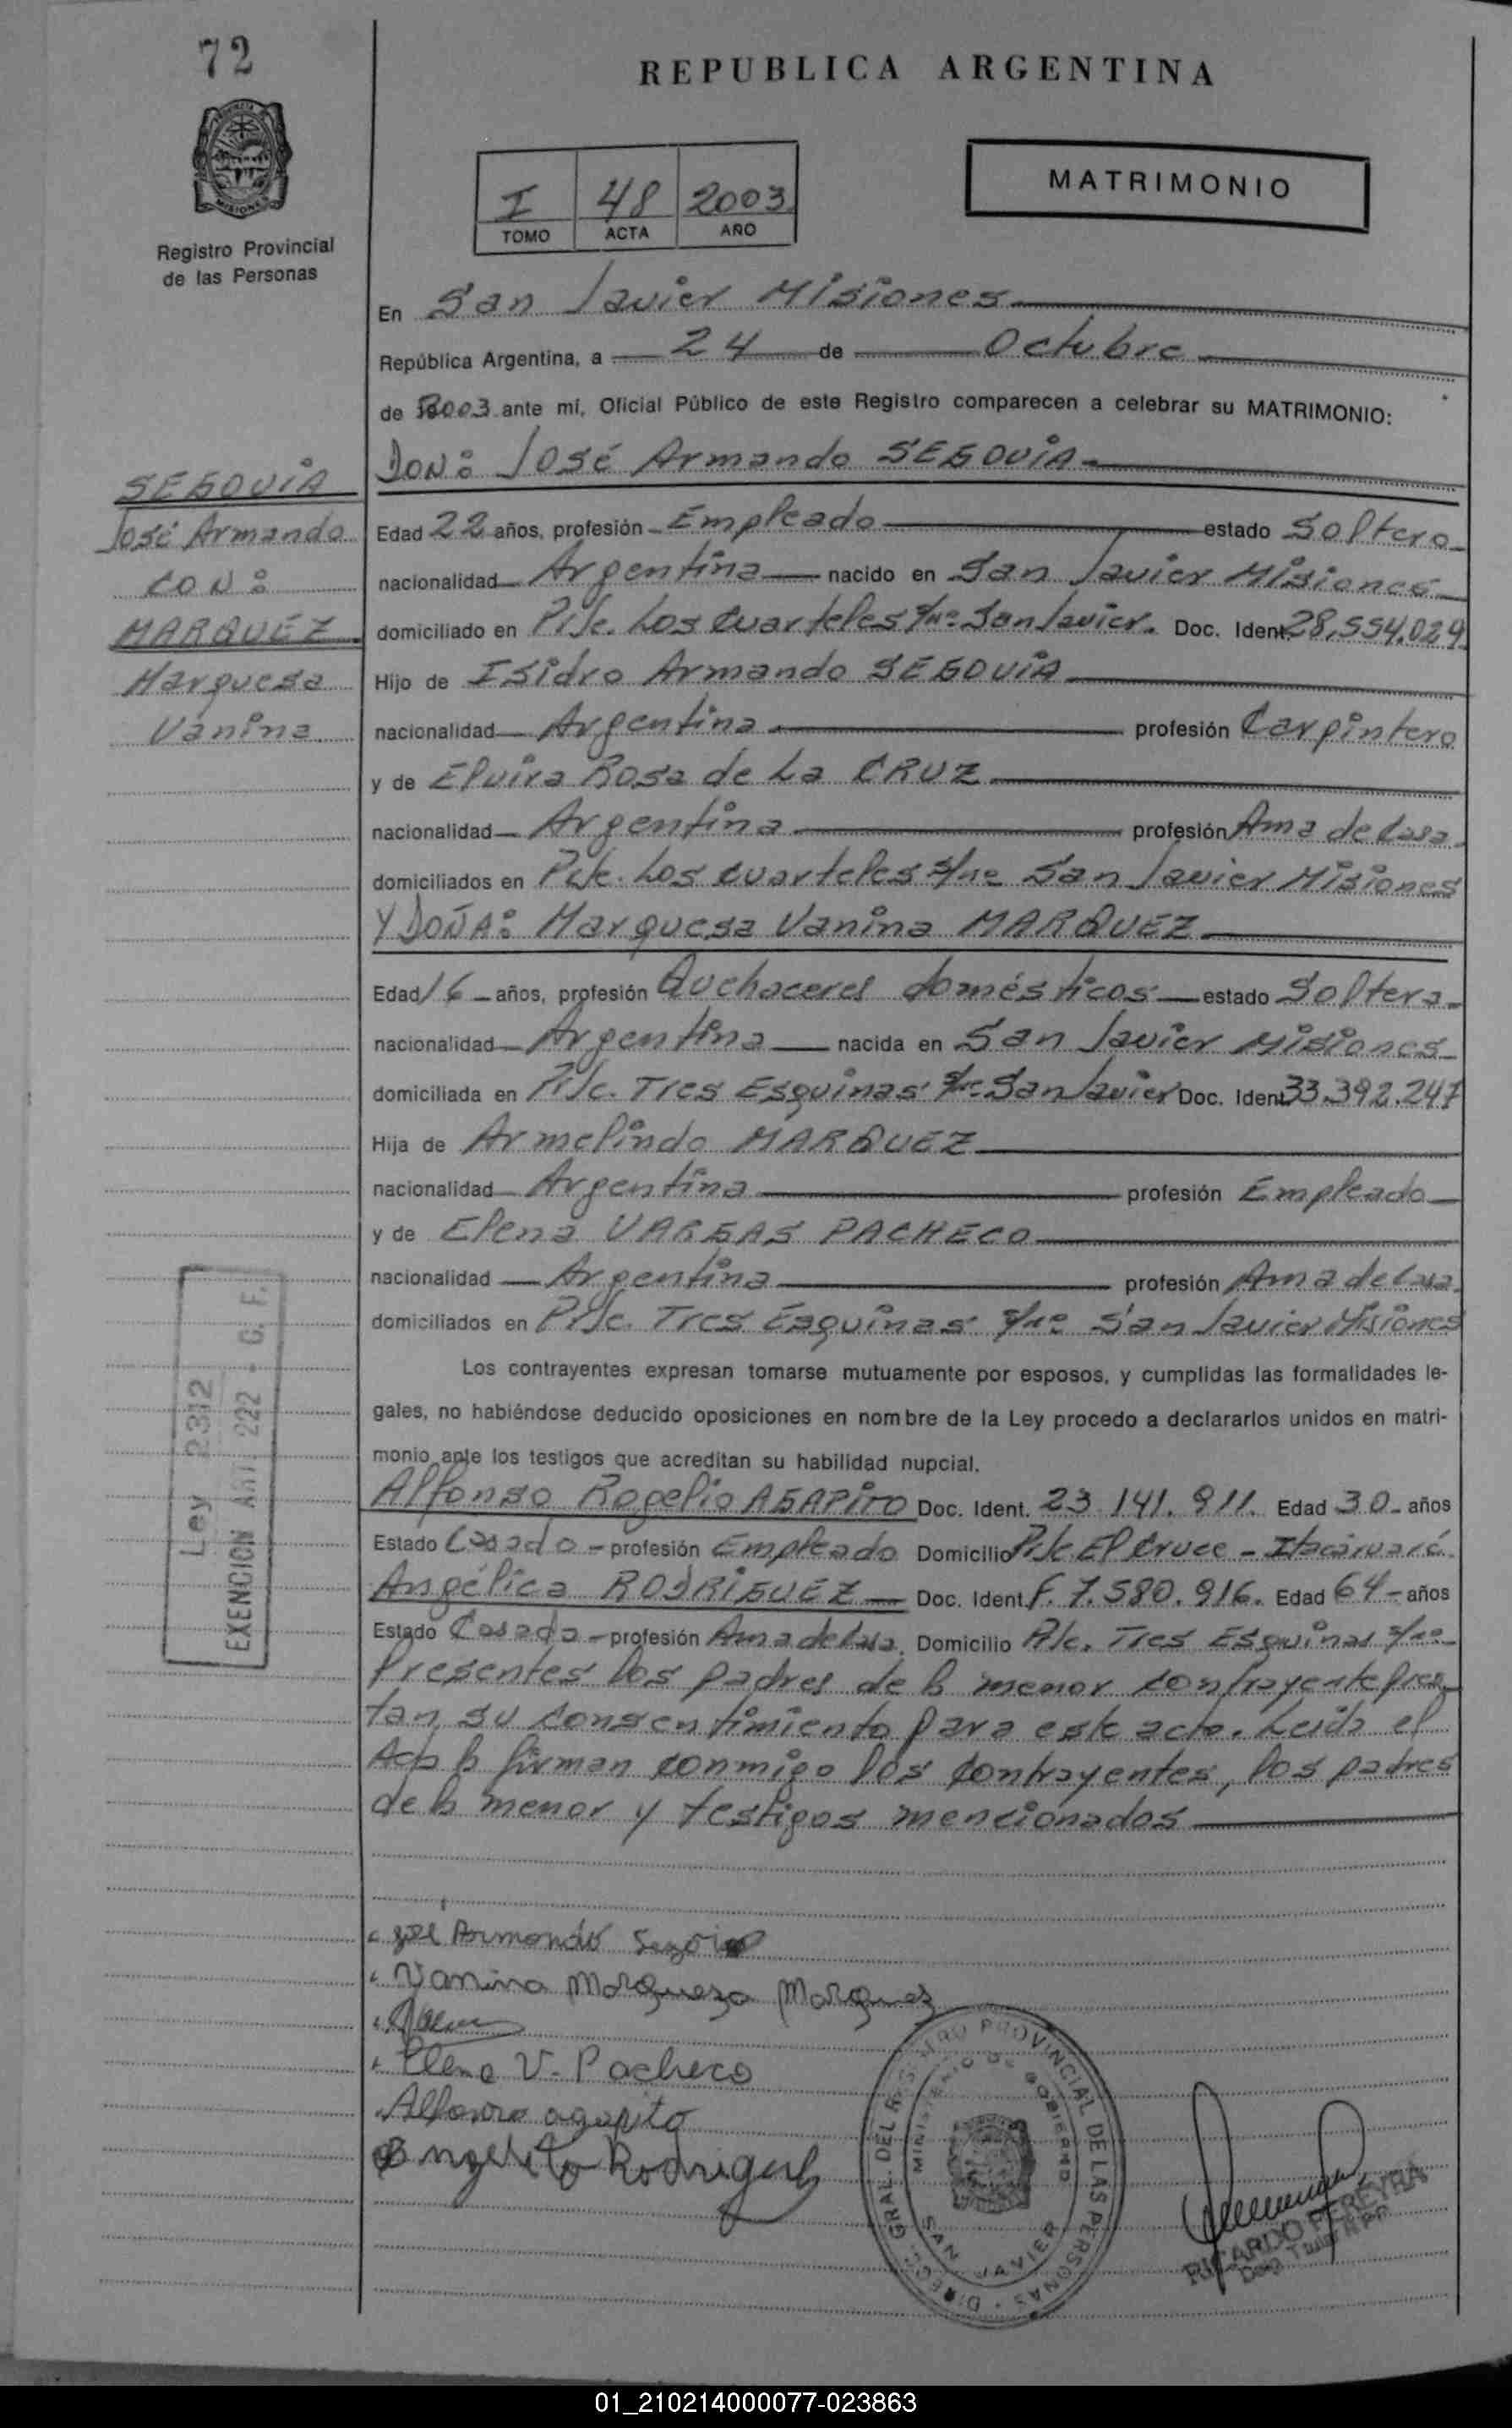 72
REPUBLICA ARGENTINA
MISIONES
Registro Provincial
de las Personas
I 48 2003
TOMO ACTA AÑO
MATRIMONIO
En San Javier Misiones
República Argentina, a 24 de Octubre
de 2003 ante mí, Oficial Público de este Registro comparecen a celebrar su MATRIMONIO:
DON: José Armando SEGOVIA
SEGOVIA
José Armando
CON:
MARQUEZ
Marquesa
Vanina
Edad 22 años, profesión Empleado estado Soltero
nacionalidad Argentina nacido en San Javier Misiones
domiciliado en Pje. Los Cuarteles s/nº San Javier. Doc. Ident. 28.554.029
Hijo de Isidro Armando SEGOVIA
nacionalidad Argentina profesión Carpintero
y de Elvira Rosa de La CRUZ
nacionalidad Argentina profesión Ama de Casa
domiciliados en Pje. Los Cuarteles s/nº San Javier Misiones
Y DOÑA: Marquesa Vanina MARQUEZ
Edad 16 años, profesión Quehaceres domésticos estado Soltera
nacionalidad Argentina nacida en San Javier Misiones
domiciliada en Pje. Tres Esquinas s/nº San Javier Doc. Ident. 33.392.247
Hija de Armelindo MARQUEZ
nacionalidad Argentina profesión Empleado
y de Elena VARGAS PACHECO
nacionalidad Argentina profesión Ama de Casa
domiciliados en Pje. Tres Esquinas s/nº San Javier Misiones
Los contrayentes expresan tomarse mutuamente por esposos, y cumplidas las formalidades le-
gales, no habiéndose deducido oposiciones en nombre de la Ley procedo a declararlos unidos en matri-
monio ante los testigos que acreditan su habilidad nupcial.
Alfonso Rogelio AGAPITO Doc. Ident. 23.141.911. Edad 30 años
Estado Casado profesión Empleado Domicilio Pje. El Cruce - Itacaruaré
Angélica RODRIGUEZ Doc. Ident. F. 7.580.916. Edad 64 años
Estado Casada profesión Ama de Casa. Domicilio Pje. Tres Esquinas s/nº
Presentes los padres de la menor contrayente pres
tan su consentimiento para este acto. Leida el
Acta la firman conmigo los contrayentes, los padres
de la menor y testigos mencionados
Ley 2312
EXENCION ART. 222 - C. F.
José Armando Segovia
Vanina Marquesa Marquez
Elena V. Pacheco
Alfonso agapito
Angelica Rodriguez
DIRECC. GRAL. DEL REGISTRO PROVINCIAL DE LAS PERSONAS
MINISTERIO DE GOBIERNO
SAN JAVIER
RICARDO PEREYRA
01_210214000077-023863